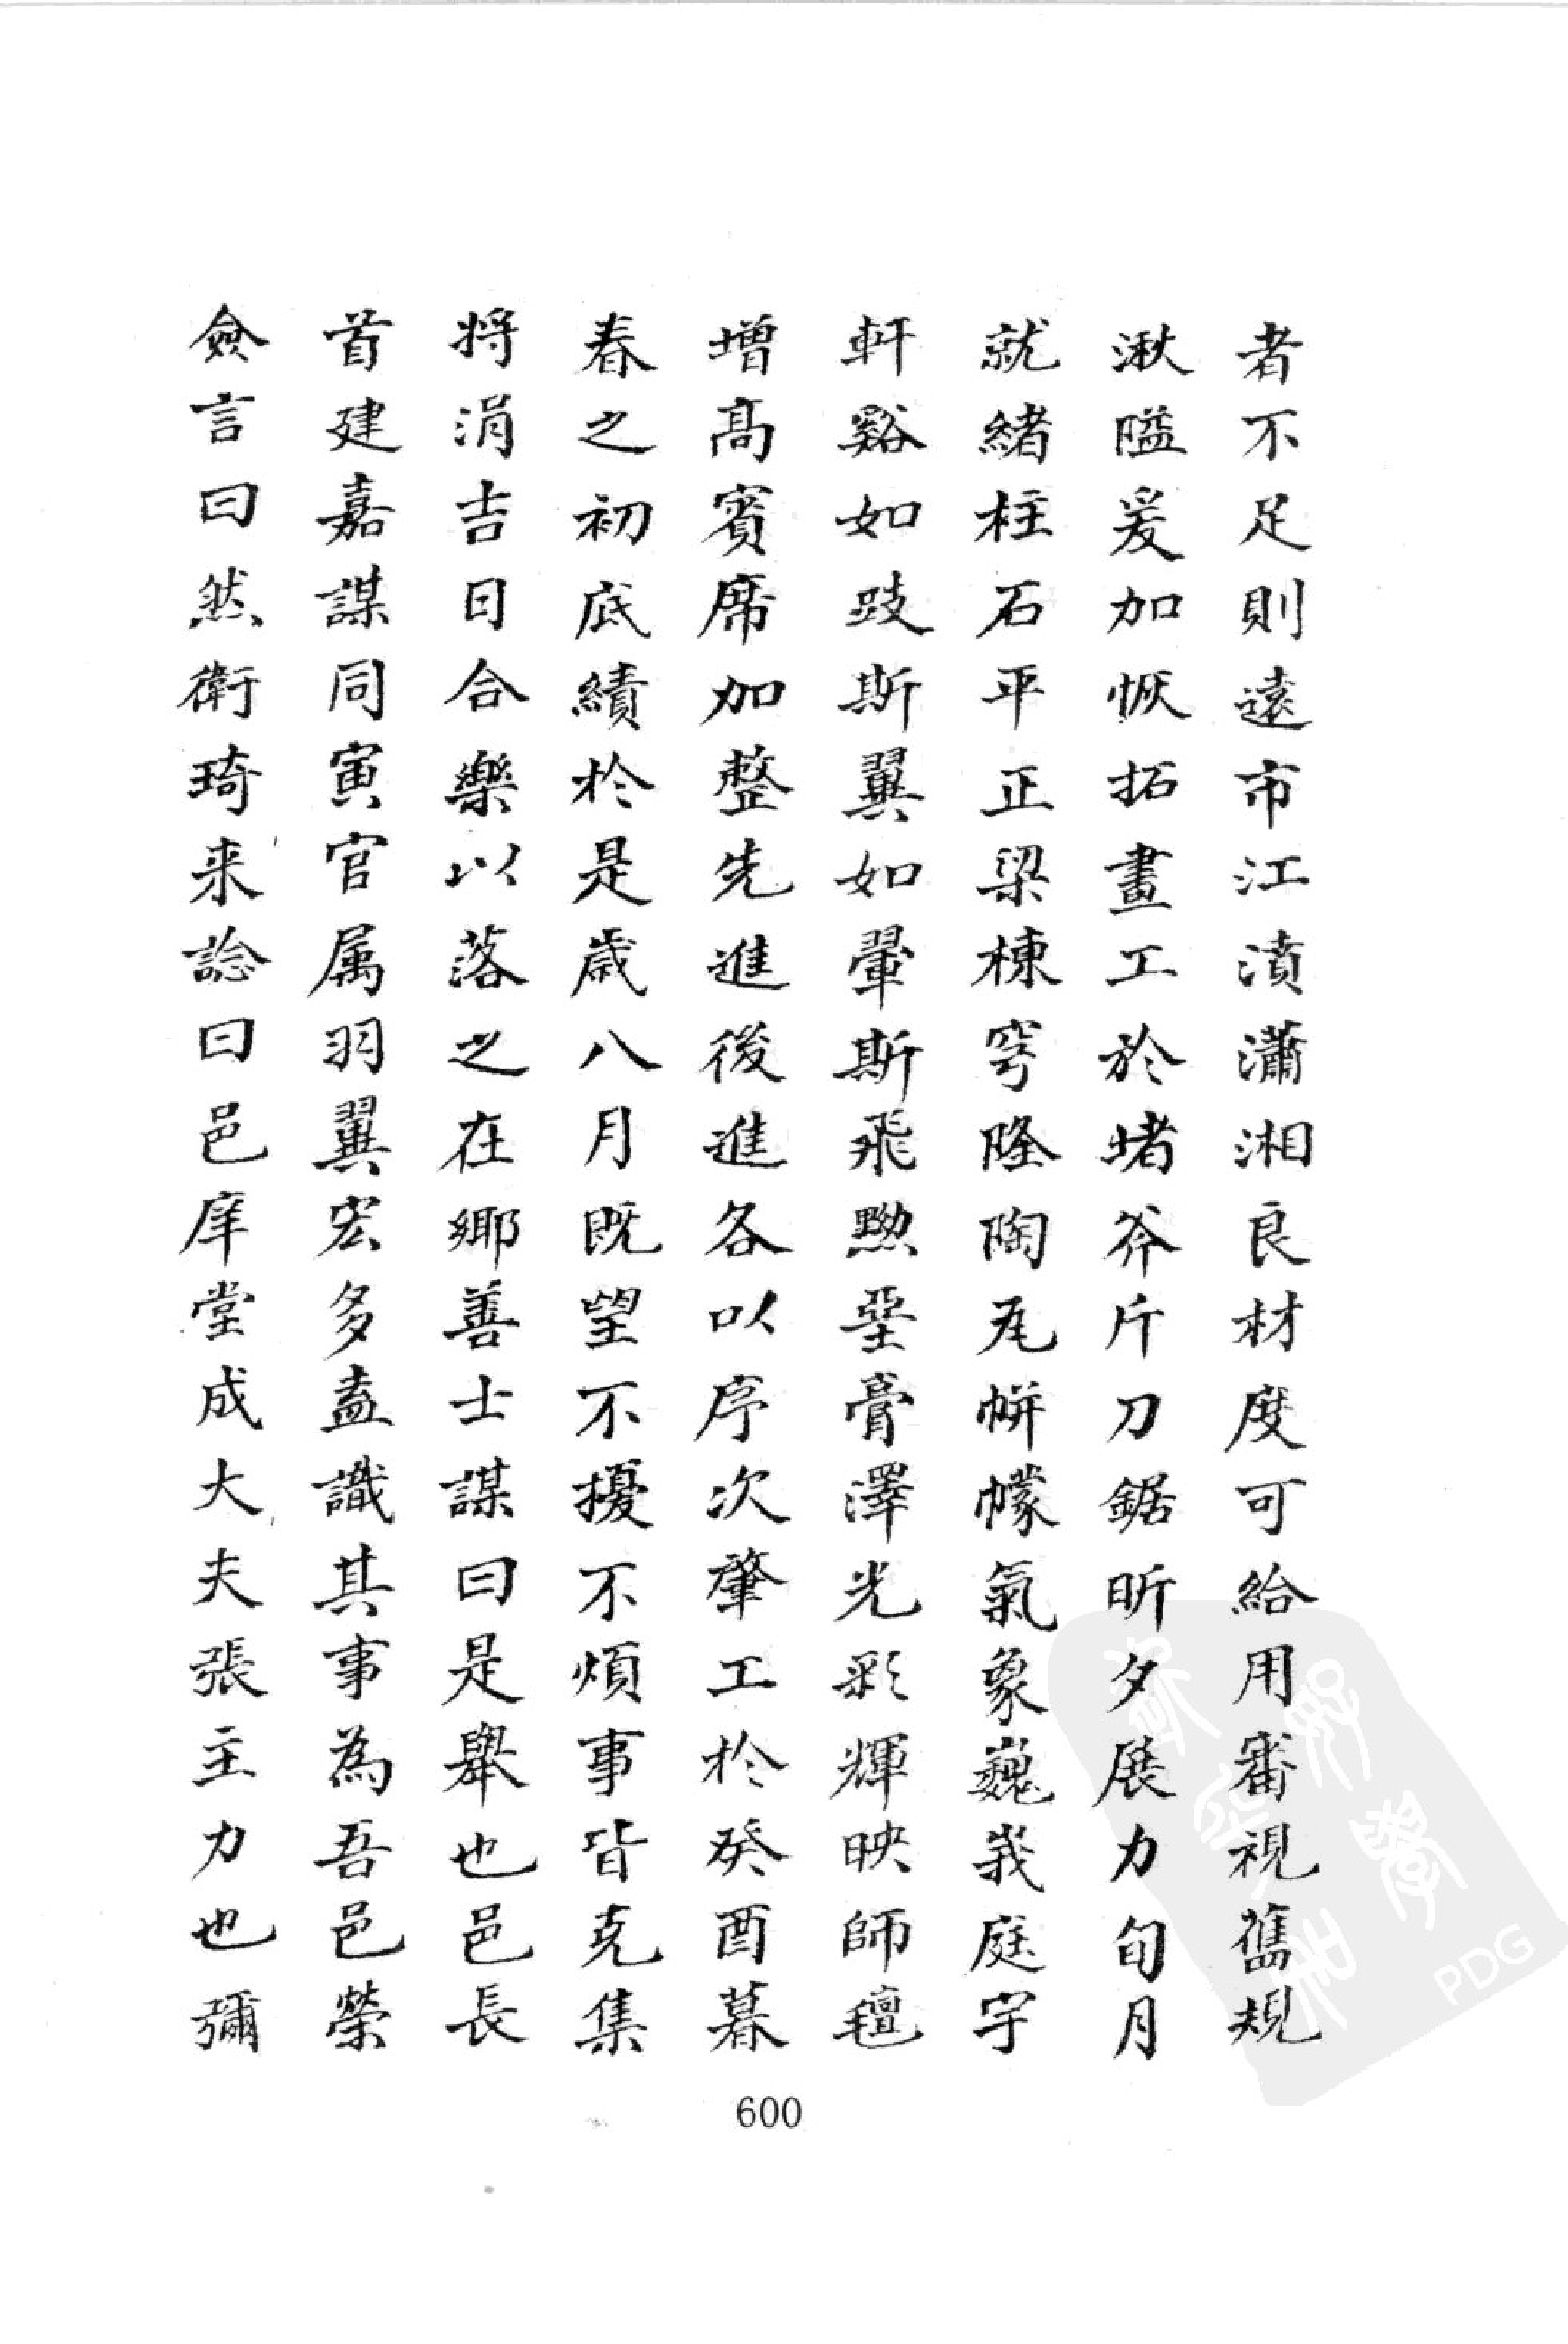 者不足則遠市江濆瀟湘良材度可給用審視舊規
湫隘爰加恢拓畫工於堵斧斤刀鋸昕夕展力旬月
就緒柱石平正梁棟穹隆陶瓦帡幪氣象巍峩庭宇
軒谿如跂斯翼如翬斯飛黝堊膏澤光彩輝映師氊
增髙賓席加整先進後進各以序次肇工於癸酉暮
春之初底績於是歳八月既望不擾不煩事皆克集
将涓吉日合樂以落之在鄉善士謀曰是舉也邑長
首建嘉謀同寅官属羽翼宏多盍識其事為吾邑榮
僉言曰然衛琦来諗曰邑庠堂成大夫張主力也彌
600
PDG